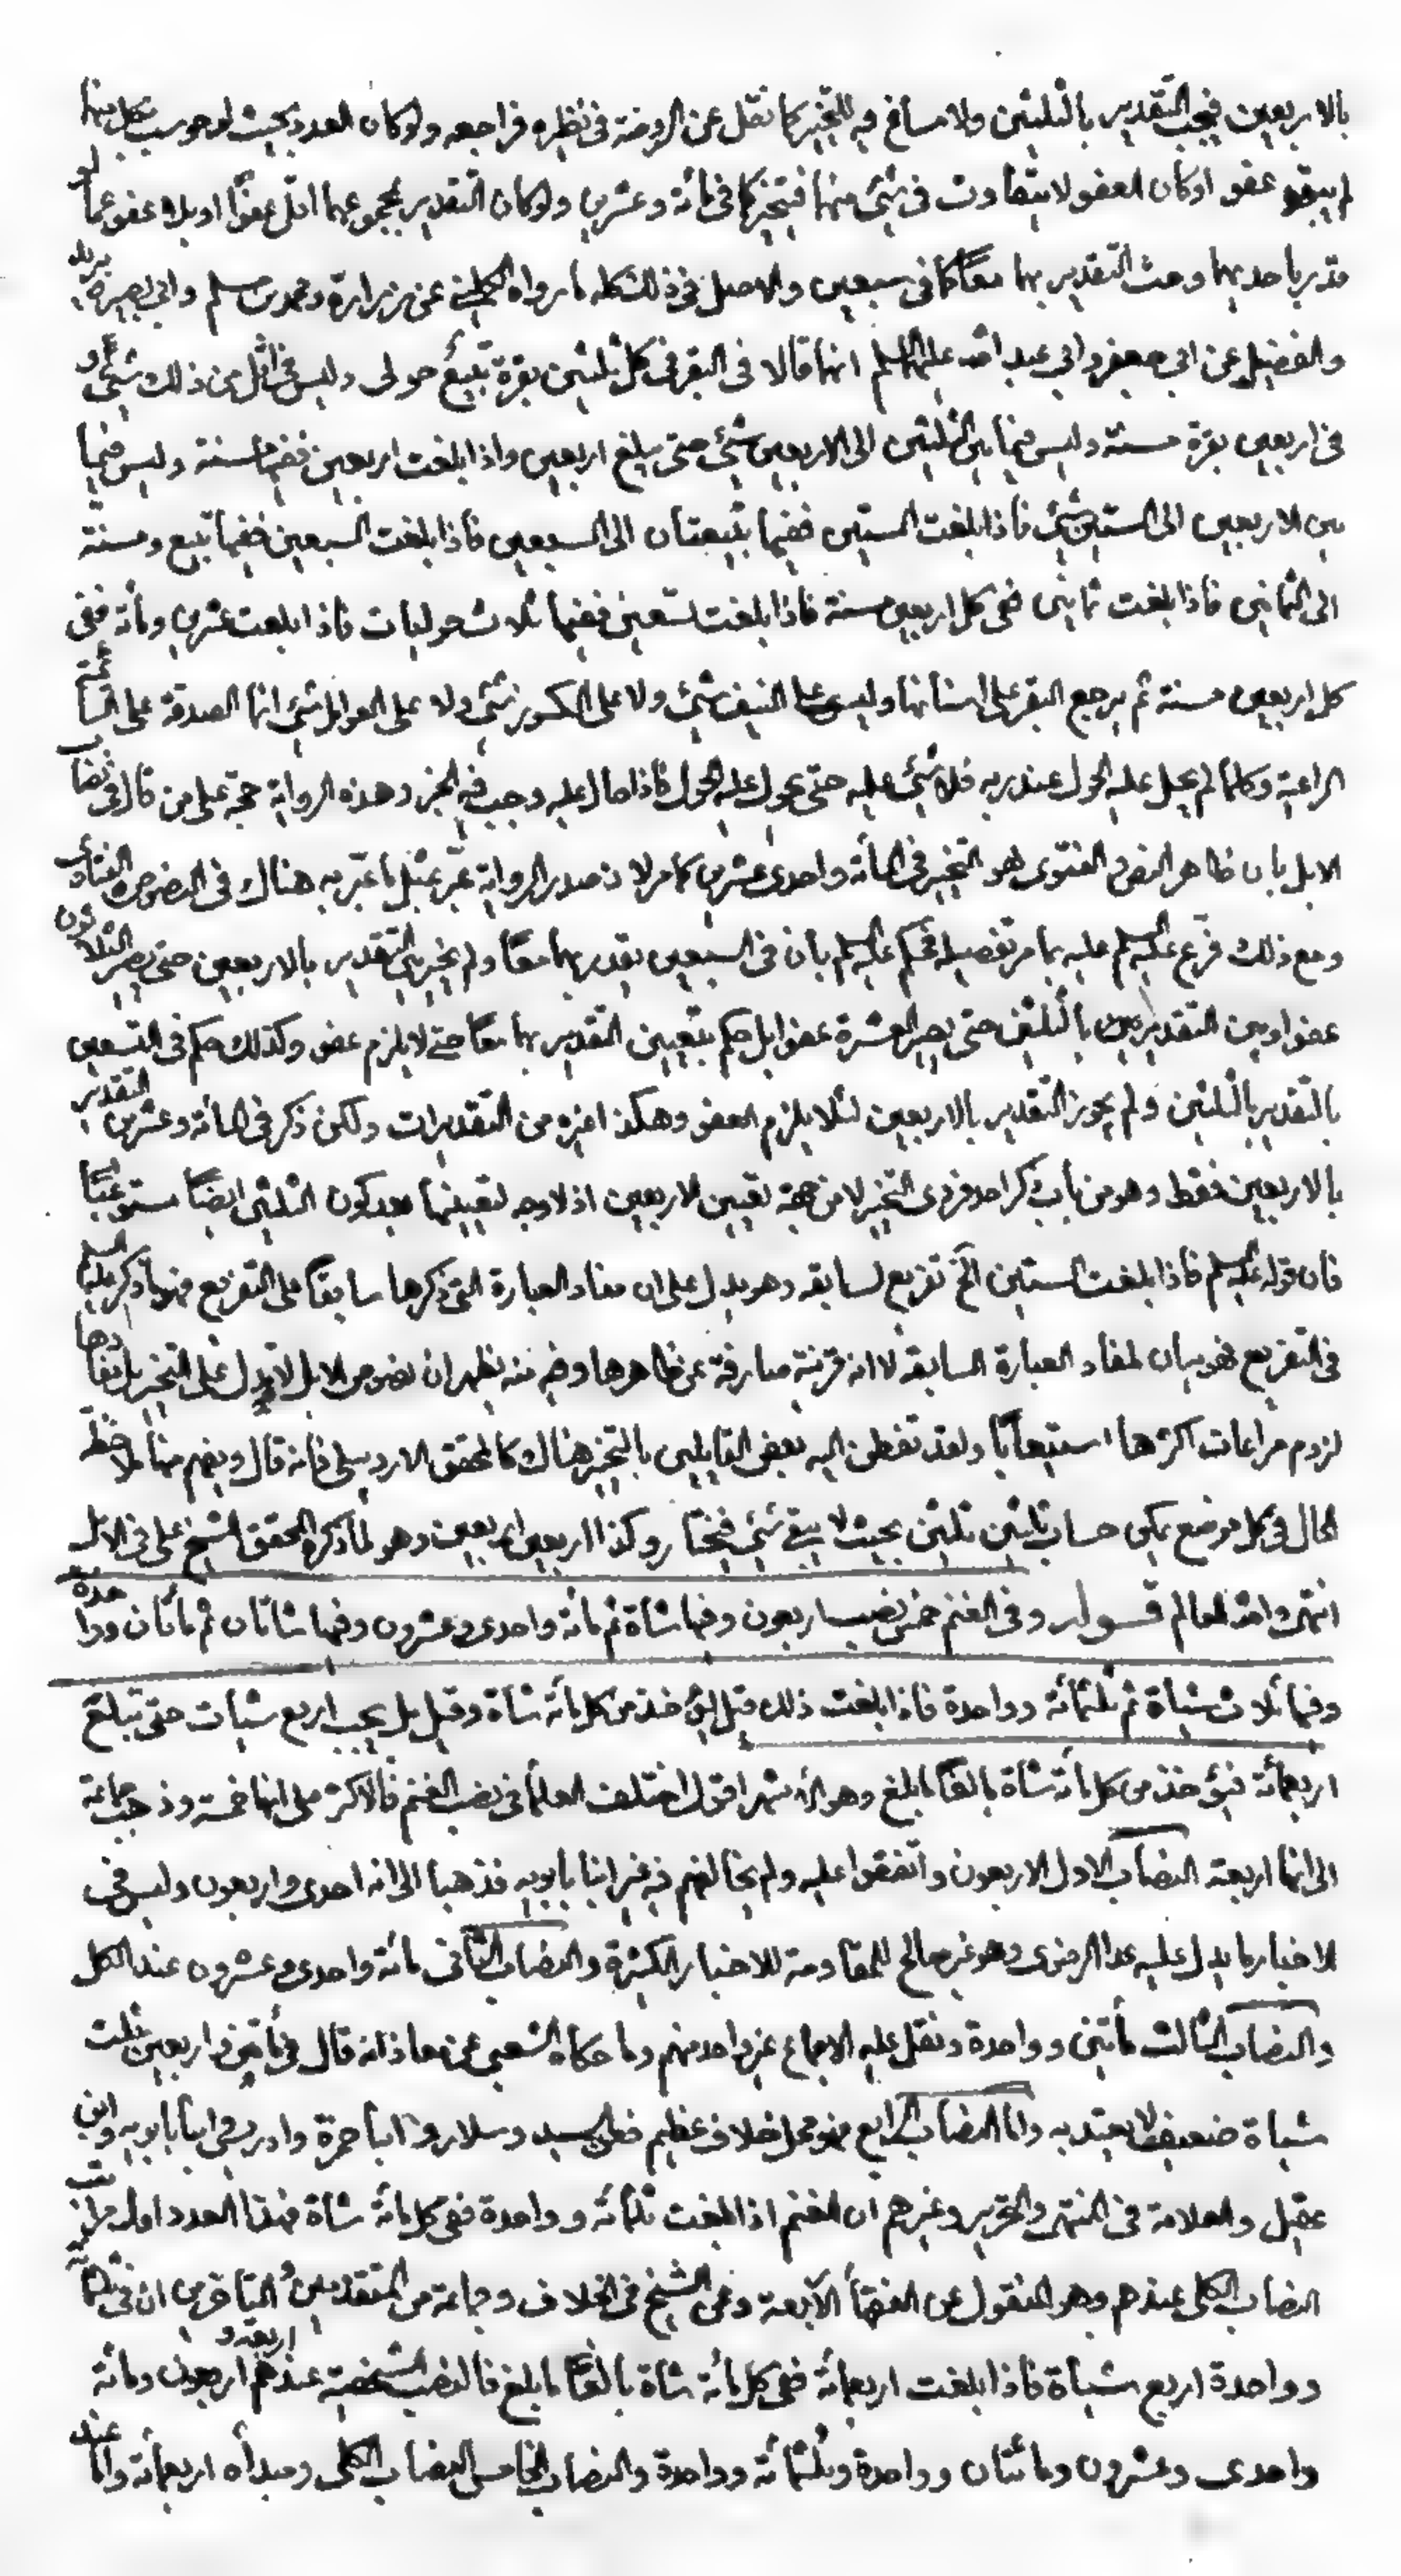 بالاربعين فيجب التقدير بالثلثين ولا مساغ فيه للتخيير كما نقل عن الروضة فى نظيره فراجعه ولو كان العدد بحيث لو حوسب بكل منهما
لم يبق عفو او كان العفو لا يتفاوت فى شئ منهما فيتخير كما فى مائة وعشرين ولو كان التقدير بمجموعهما اقل عفوا او بلا عفو عما لو
قدر باحديهما وجب التقدير بهما معًا كما فى سبعين والاصل فى ذلك كله ما رواه الكلينى عن زرارة ومحمد بن مسلم وابى بصير وبريد
والفضيل عن ابى جعفر وابى عبد الله عليهما السلم انهما قالا فى البقر فى كل ثلثين بقرة تبيع حولى وليس فى اقل من ذلك شئ و
فى اربعين بقرة مسنة وليس فيما بين الثلثين الى الاربعين شئ حتى يبلغ اربعين واذا بلغت اربعين ففيها مسنة وليس فيما
بين الاربعين الى الستين شئ فاذا بلغت الستين ففيها تبيعتان الى السبعين فاذا بلغت السبعين ففيها تبيع ومسنة
الى الثمانين فاذا بلغت ثمانين ففى كل اربعين مسنة فاذا بلغت تسعين ففيها ثلاث حوليات فاذا بلغت عشرين ومائة ففى
كل اربعين مسنة ثم يرجع البقر على اسنانها وليس على النيف شئ ولا على الكسور شئ ولا على العوامل شئ انما الصدقة على السائمة
الراعية وكلما لم يحل عليه الحول عند ربه فلا شئ عليه حتى يحول عليه الحول فاذا حال عليه وجب فيه الخبر وهذه الرواية حجة على من قال فى نصاب
الابل بان ظاهر النص والفتوى هو التخيير فى المائة واحدى وعشرين كما مر لان صدر الرواية عبر بمثل ما عبر به هناك فى النصوص والفتاوى
ومع ذلك فرع عليه السلم عليه بما مر تفصيله فحكم عليه السلم بان فى السبعين يقدر بهما معًا ولم يخير بين التقدير بالاربعين حتى يصير الثلاثون
عفوا وبين التقدير بالثلثين حتى يصير العشرة عفوا بل حكم بتعيين التقدير بهما معا حتى لا يلزم عفو وكذلك حكم فى التسعين
بالتقدير بالثلثين ولم يجوز التقدير بالاربعين لئلا يلزم العفو وهكذا غيره من التقديرات ولكن ذكر فى المائة وعشرين التقدير
بالاربعين فقط وهو من باب ذكر احد فردى التخيير لا من جهة تعيين الاربعين اذ لا وجه لتعيينها بعد كون الثلثين ايضًا مستوعبًا
فان قوله عليه السلم فاذا بلغت الستين الخ تفريع لسابقه وهو يدل على ان مفاد العبارة التى ذكرها سابقا على التفريع فهو ما ذكر عليه السلم
فى التفريع فهو بيان لمفاد العبارة السابقة لا انه قرينة صارفة عن ظاهرها وفيه منه يظهر ان نصوص الابل لا تدل على التخيير بل مفادها
لزوم مراعات اكثرها استيعابًا ولقد تفطن اليه بعض القايلين بالتخيير هناك كالمحقق الاردبيلى فانه قال ويفهم منها ملاحظة
الحال فى كل موضع يمكن حساب ثلثين ثلثين بحيث لا يبقى شئ فيختار وكذا اربعين اربعين وهو لما ذكره المحقق الشيخ على فى الابل
انتهى والله العالم قوله وفى الغنم خمس نصب اربعون وفيها شاة ثم مائة واحدى وعشرون وفيها شاتان ثم مائتان وواحدة
وفيها ثلاث شياة ثم ثلثمائة وواحدة فاذا بلغت ذلك قيل يؤخذ من كل مائة شاة وقيل بل يجب اربع شيات حتى تبلغ
اربعمائة فيؤخذ من كل مائة شاة بالغًا ما بلغ وهو الاشهر اقول اختلف العلمأ فى نصب الغنم فالاكثر على انها خمسة وذهب جماعة
الى انها اربعة النصاب الاول الاربعون واتفقوا عليه ولم يخالفهم فيه غير ابنا بابويه فذهبا الى انه احدى واربعون وليس فى
الاخبار ما يدل عليه عدا الرضوى وهو غير صالح للمقاومة للاخبار الكثيرة والنصاب الثانى مائة واحدى وعشرون عند الكل
والنصاب الثالث مأتين وواحدة ونقل عليه الاجماع غير واحد منهم وما حكاه الشعبى عن معاذ انه قال فى مأتين واربعين ثلث
شياة ضعيف لا يعتد به واما النصاب الرابع فهو محل خلاف عظيم فعن السيد وسلار وابنا حمزة وادريس وابنا بابويه وابن
عقيل والعلامة فى المنتهى والتحرير وغيرهم ان الغنم اذا بلغت ثلثمائة وواحدة ففى كل مائة شاة فهذا العدد اول مراتب
النصاب الكلى عندهم وهو المنقول عن الفقهأ الاربعة وعن الشيخ فى الخلاف وجماعة من المتقدمين والمتأخرين ان فى ثلثمائة
وواحدة اربع شياة فاذا بلغت اربعمائة ففى كل مائة شاة بالغًا ما بلغ فالنصب الشخصية عندهم اربعة واربعون ومائة
واحدى وعشرون ومائتان وواحدة وثلثمائة وواحدة والنصاب الخامس النصاب الكلى ومبدأه اربعمائة واما عند